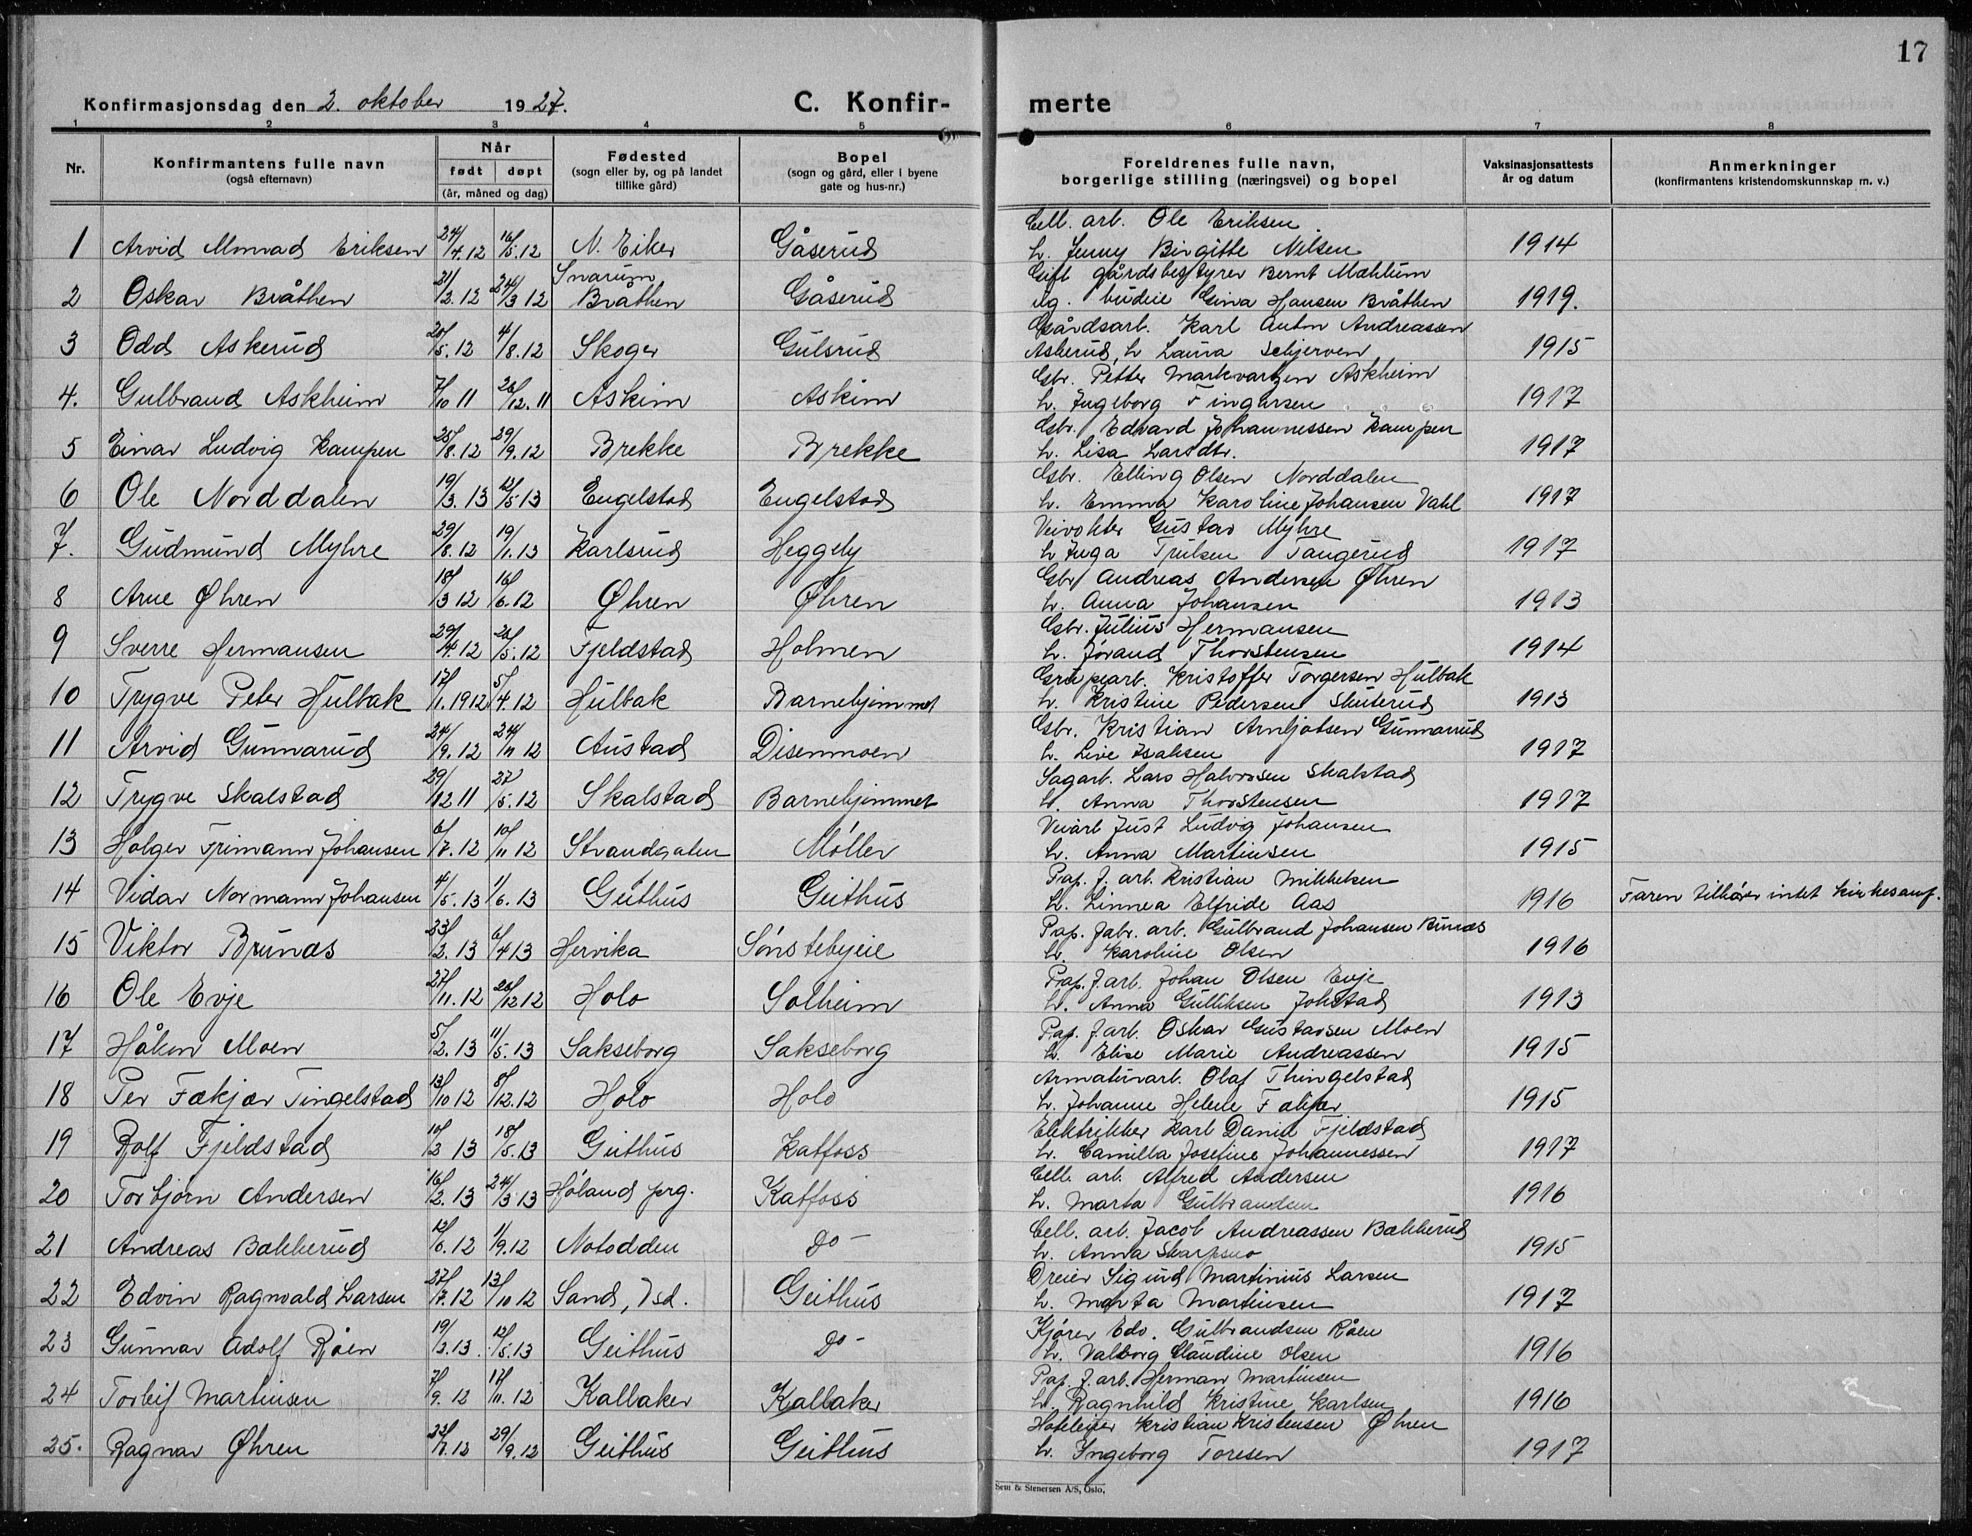 17
Konfirmasjonsdag den 2. oktober 1927.
C. Konfir-
merte
1 2 3 4 5 6 7 8
Nr.
Konfirmantens fulle navn
(også efternavn)
Når
født døpt
(år, måned og dag)
Fødested
(sogn eller by, og på landet
tillike gård)
Bopel
(sogn og gård, eller i byene
gate og hus-nr.)
Foreldrenes fulle navn,
borgerlige stilling (næringsvei) og bopel
Vaksinasjonsattests
år og datum
Anmerkninger
(konfirmantens kristendomskunnskap m. v.)
Cell. arb. Ole Eriksen
1 Arvid Eriksen 24/4.12 16/5.12 N. Eiker Gåserud h. Jenny Birgitte Nilsen 1914
Snarum Gift gårdsbestyrer Bernt Mæhlum
2 Oskar Bråthen 21/2.12 24/3 12 Bråthen Gåserud ug. budeie Gina Hansen Bråthen 1919.
Gårdsarb. Karl Anton Andreassen
3 Odd Askerud 20/5.12 4/8.12 Skoger Gulsrud Askerud, h Laura Schjerven 1915
Gbr. Petter Markvartsen Askheim
4. Gulbrand Askheim 7/10 11 26/12.11 Askim Askim h. Ingeborg Fingarsen 1917
Gbr. Edvard Johannessen Kampen
5 Einar Ludvig Kampen 25/8.12 29/9.12 Brekke Brekke h. Lisa Larsdtr. 1917
Gbr. Elling Olsen Norddalen
6 Ole Norddalen 19/3.13 12/5 13 Engelstad Engelstad h. Emma Karoline Johansen Vahl 1917
Veivokter Gustav Myhre
7. Gudmund Myhre 29/8.12 19/1.13 Karlsrud Heggely h Inga Trulsen Tangerud 1917
Gbr Andreas Andersen Øhren
8 Arne Øhren 18/3 12 16/6.12 Øhren Øhren h. Anna Johansen 1913
Gbr. Julius Hermansen
9 Sverre Hermansen 29/4.12 26/5.12 Fjeldstad Holmen h. Jørand Thorstensen 1914
Grubearb. Kristoffer Torgersen Hulbak
10 Trygve Peter Hulbak 17/1.1912 5/4.12 Hulbak Barnehjemmet h. Kristine Pedersen Skuterud 1913
Gbr. Kristian Arnljotsen Gunnarud
11 Arvid Gunnarud 24/9.12 24/11 12 Austad Disenmoen h. Live Isaksen 1917
Sagarb. Lars Halvorsen Skalstad
12 Trygve Skalstad 29/12 11 27/5.12 Skalstad Barnehjemmet h. Anna Thorstensen 1917
Veiarb Just Ludvig Johansen
13 Holger Trimann Johansen 6/7.12 10/11 12 Strandgaten Møller h. Anna Martinsen 1915
Pap. f. arb. Kristian Mikkelsen
14 Vidar Normann Johansen 4/5.13 1/6.13 Geithus Geithus h. Linnea Elfride Aas 1916 Faren tilhører intet kirkesamf.
Pap. fabr. arb. Gulbrand Johansen Bunæs
15 Viktor Brunæs 23/2.13 6/4 13 Hervika Sønstebyeie h. Karoline Olsen 1916
Pap. f. arb. Johan Olsen Evje
16 Ole Evje 27/11.12 26/12 12 Holo Solheim h. Anna Gulliksen Jokstad 1913
Pap. f arb. Oskar Gustavsen Moen
17 Håkon Moen 5/2.13 11/5.13 Sakseborg Sakseborg h. Elise Marie Andreassen 1915
Armaturarb. Olaf Thingelstad
18 Per Fækjær Tingelstad 13/10 12 8/12.12 Holo Holo h. Johanne Helene Fækjær 1915
Elektrikker Karl Daniel Fjeldstad
19 Rolf Fjeldstad 10/2 13 18/5.13 Geithus Katfoss h. Camilla Josefine Johannessen 1917
Cell. arb. Alfred Andersen
20 Torbjørn Andersen 16/2.13 24/3 13 Høland prg. Katfoss h. Marta Gulbrandsen 1916
Cell. arb. Jacob Andreassen Bækkerud
21 Andreas Bækkerud 12/6.12 1/9.12 Notodden Do – h. Anna Skarpsno 1915
Dreier Sigurd Martinius Larsen
22 Edvin Ragnvald Larsen 27/7.12 13/10 12 Sand, Geithus h. Marta Martinsen 1917
Kjører Edv. Gulbrandsen Råen
23 Gunnar Adolf Råen 19/3.13 12/5.13 Geithus Do – h. Valborg Claudine Olsen 1916
Pap. f. arb. Herman Martinsen
24 Torleif Martinsen 7/9.12 17/11.12 Kallaker Kallaker h. Ragnhild Kristine Karlsen 1916
Hoteleier Kristian Kristensen Øhren
25. Ragnar Øhren 22/7.12 29/9.12 Geithus Geithus h. Ingeborg Toresen 1917
Sem & Stenersen A/S, Oslo.